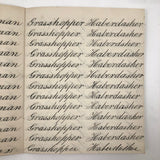 Grasshopper Haberdasher
Grasshopper Haberdasher
Grasshopper Haberdasher
Grasshopper Haberdasher
Grasshopper Haberdasher
Grasshopper Haberdasher
Grasshopper Haberdasher
Grasshopper Haberdasher
Grasshopper Haberdasher
Grasshopper Haberdasher
Grasshopper Haberdasher
Grasshopper Haberdasher